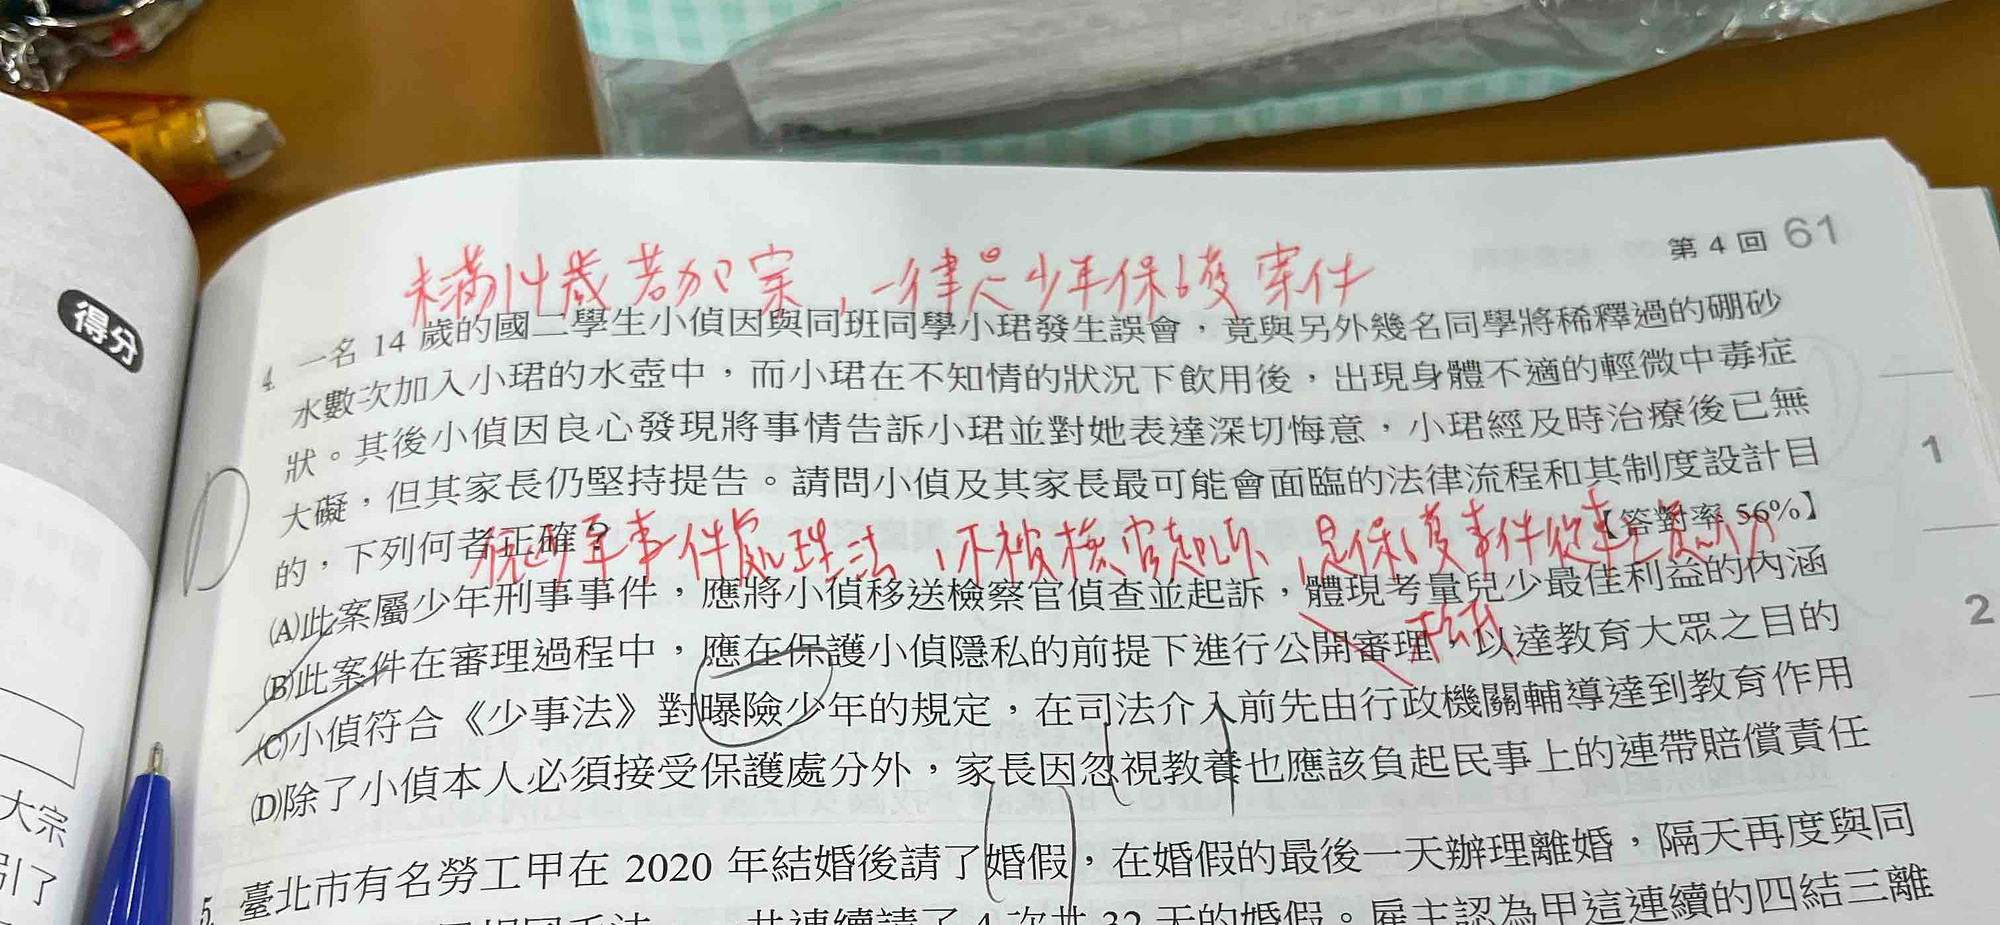 得分
大宗
引了
第4回 61
未滿14歲若加害,一律是少年保護案件
4. 一名 14 歲的國二學生小偵因與同班同學小珺發生誤會,竟與另外幾名同學將稀釋過的硼砂
水數次加入小珺的水壺中,而小珺在不知情的狀況下飲用後,出現身體不適的輕微中毒症
狀。其後小偵因良心發現將事情告訴小珺並對她表達深切悔意,小珺經及時治療後已無
大礙,但其家長仍堅持提告。請問小偵及其家長最可能會面臨的法律流程和其制度設計目
的,下列何者正確?
【答對率 56%】
少年事件處理法,不被檢官起訴,是保護事件
(A)此案屬少年刑事事件,應將小偵移送檢察官偵查並起訴,體現考量兒少最佳利益的內涵
(B)此案件在審理過程中,應在保護小偵隱私的前提下進行公開審理,以達教育大眾之目的
(C)小偵符合《少事法》對曝險少年的規定,在司法介入前先由行政機關輔導達到教育作用
(D)除了小偵本人必須接受保護處分外,家長因忽視教養也應該負起民事上的連帶賠償責任
5. 臺北市有名勞工甲在 2020 年結婚後請了婚假,在婚假的最後一天辦理離婚,隔天再度與同
共連續請了 4 次共 32 天的婚假。雇主認為甲這連續的四結三離
1
2